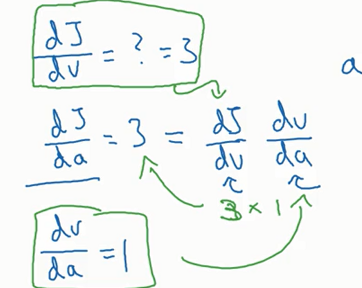 dJ/dv = ? = 3
a
dJ/da = 3 = dJ/dv dv/da
3 × 1
dv/da = 1